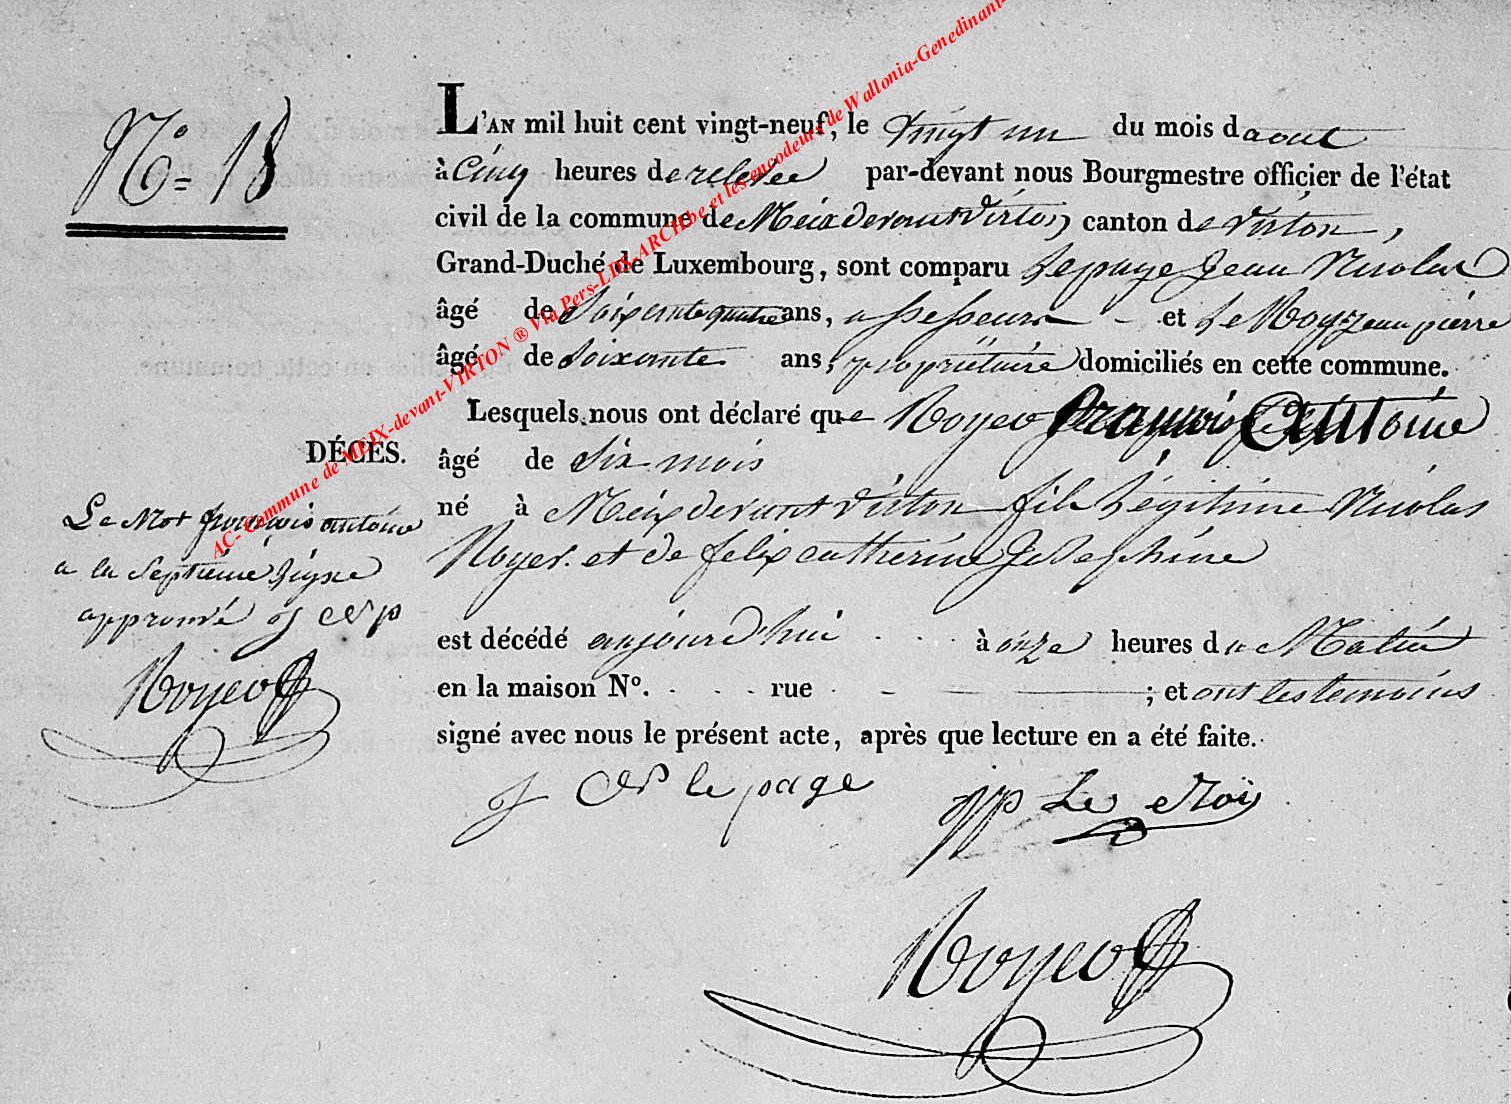 N° 18
L'AN mil huit cent vingt-neuf, le vingt un du mois d aout
à cinq heures de relevée par-devant nous Bourgmestre officier de l'état
civil de la commune de Meix devant virton, canton de virton,
Grand-Duché de Luxembourg, sont comparu Lepage Jean Nicolas
âgé de Soixante quatre ans, assesseur et Le Noy Jean pierre
âgé de Soixante ans, propriétaire domiciliés en cette commune.
Lesquels nous ont déclaré que Noyer françois Antoine
DÉCÈS.
âgé de Six mois
né à Meix devant virton fils Légitime Nicolas
Noyer et de felix catherine Josephine
Le Mot françois antoine
a la Septieme Ligne
approuvé
Noyer
est décédé aujourd'hui à onze heures du Matin
en la maison N°. rue ; et ont les temoins
signé avec nous le présent acte, après que lecture en a été faite.
J N le page
JP Le Noÿ
Noyer
AC- Commune de MEIX-devant-VIRTON ® Via Pers-LUX-ARCH.be et les encodeurs de Wallonia-Genedinant-